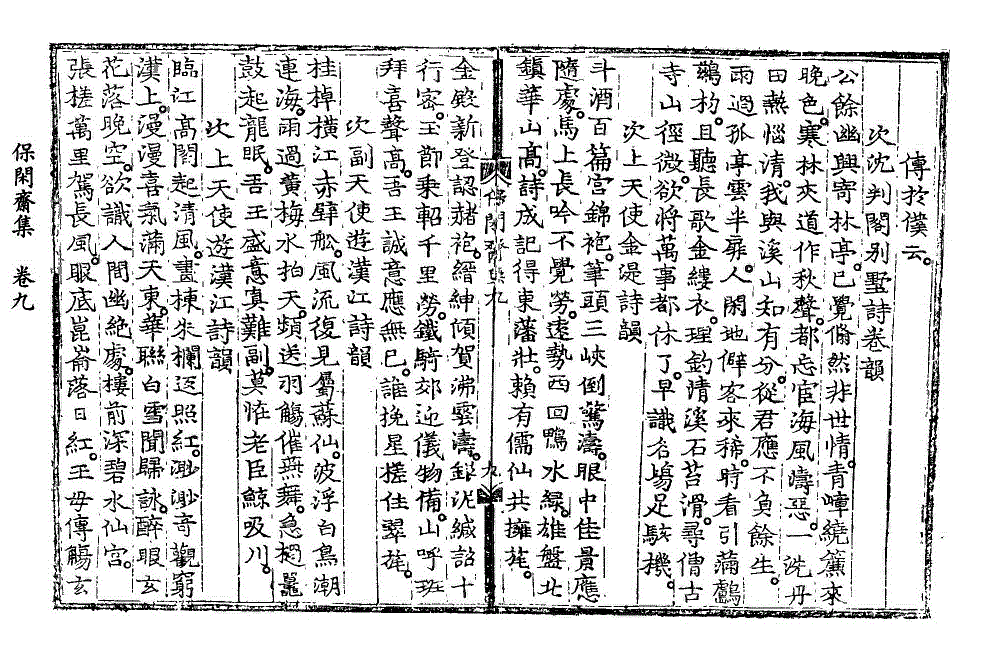 傳於僕云。
次沈判閣別墅詩卷韻
公餘幽興寄林亭。已覺翛然非世情。靑嶂繞簾來
晚色。寒林夾道作秋聲。都忘宦海風濤惡。一洗丹
田熱惱淸。我與溪山知有分。從君應不負餘生。
雨過孤亭雲半扉。人閑地僻客來稀。時看引滿鸕
鶿杓。且聽長歌金縷衣。理釣淸溪石苔滑。尋僧古
寺山徑微。欲將萬事都休了。早識名場足駭機。
次上天使金湜詩韻
斗酒百篇宮錦袍。筆頭三峽倒驚濤。眼中佳景應
隨處。馬上長吟不覺勞。遠勢西回鴨水綠。雄盤北
鎭華山高。詩成記得東藩壯。賴有儒仙共擁旄。
保閑齋集九
九
金殿新登認赭袍。縉紳傾賀沸雲濤。銀泥緘詔十
行密。玉節乘軺千里勞。鐵騎郊迎儀物備。山呼班
拜喜聲高。吾王誠意應無已。誰挽星槎住翠旄。
次副天使遊漢江詩韻
桂棹橫江赤壁船。風流復見屬蘇仙。波浮白鳥潮
連海。雨過黃梅水拍天。頻送羽觴催燕舞。急撾鼉
鼓起龍眠。吾王盛意眞難副。莫怪老臣鯨吸川。
次上天使遊漢江詩韻
臨江高閣起淸風。畫棟朱欄迥照紅。渺渺奇觀窮
漢上。漫漫喜氣滿天東。華聯白雪聞歸詠。醉眼玄
花落晚空。欲識人間幽絶處。樓前深碧水仙宮。
張槎萬里駕長風。眼底崑崙落日紅。王母傳觴玄
保閑齋集 卷九